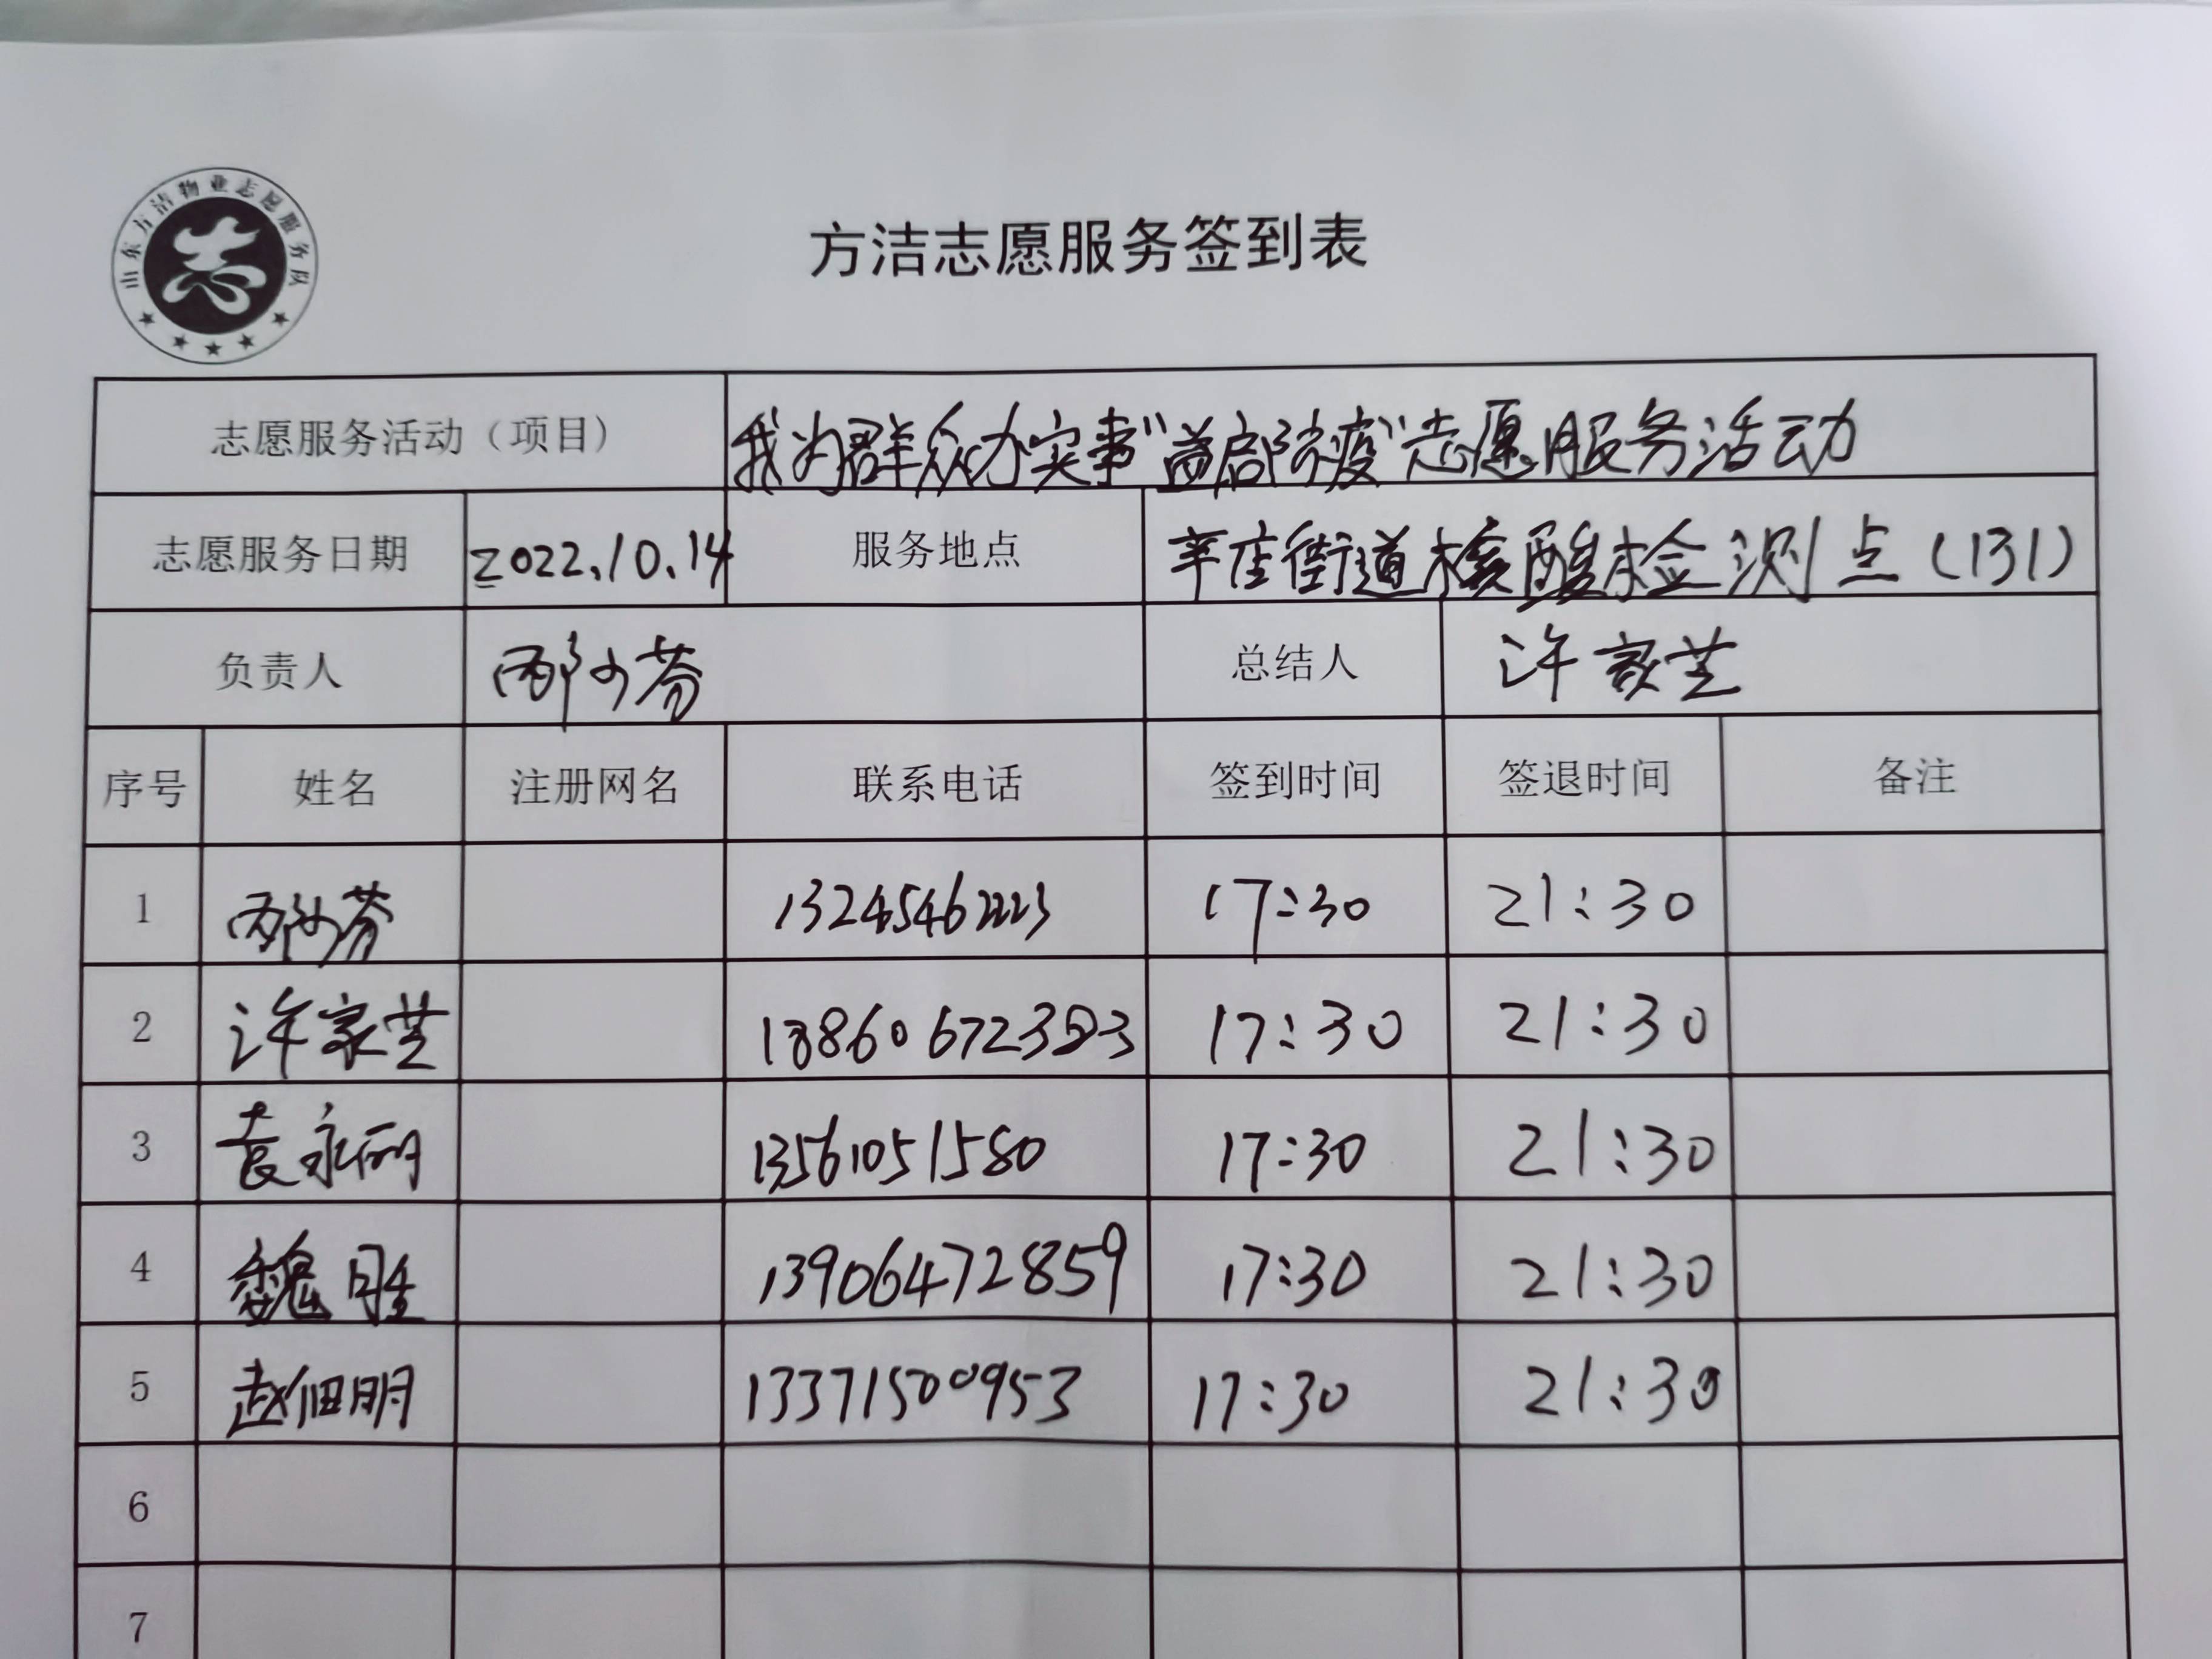 山东方洁物业志愿服务队
志
方洁志愿服务签到表
志愿服务活动（项目） 我为群众办实事“益启防疫”志愿服务活动
志愿服务日期 2022.10.14 服务地点 辛庄街道核酸检测点(131)
负责人 邴少芬 总结人 许家芝
序号 姓名 注册网名 联系电话 签到时间 签退时间 备注
1 邴少芬 17:30 21:30
2 许家芝 17:30 21:30
3 袁永丽 13561051580 17:30 21:30
4 魏胜 13906472859 17:30 21:30
5 赵佃明 13371500953 17:30 21:30
6
7